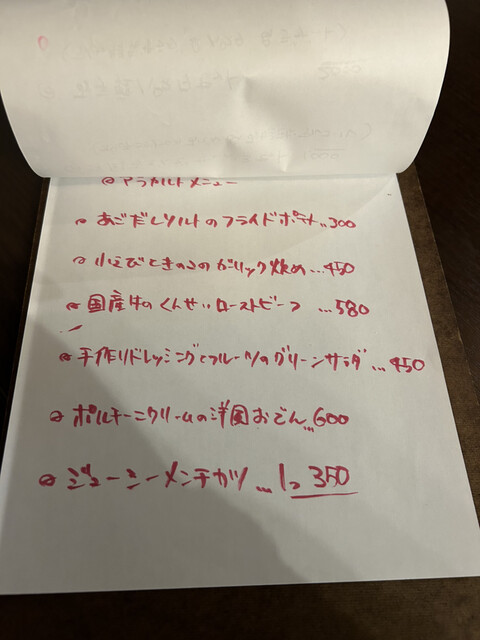 アラカルトメニュー
あごだしソルトのフライドポテト...300
小えびときのこのガーリック炒め...450
国産牛のくんせいローストビーフ ...580
手作りドレッシングとフルーツのグリーンサラダ...450
ポルチーニクリームの洋風おでん...600
ジューシーメンチカツ...1コ 350